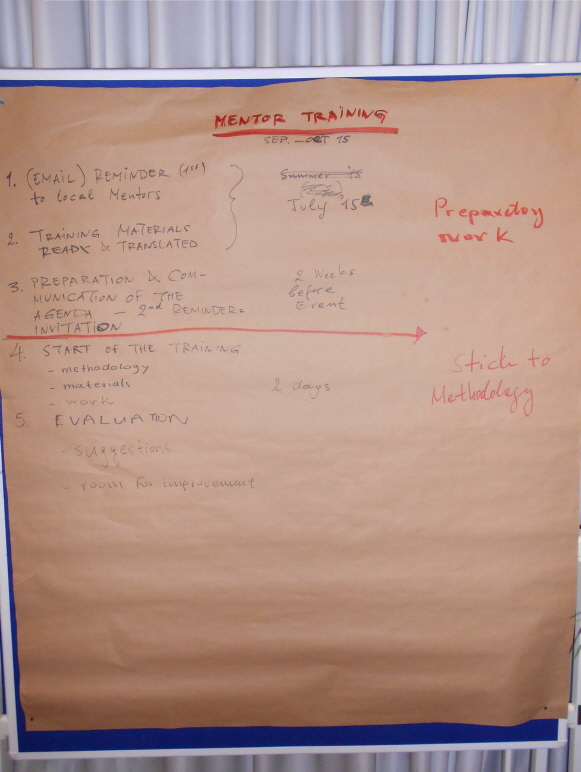 MENTOR TRAINING
SEP. - OCT 15
1. (EMAIL) REMINDER (1st)
to local Mentors
Summer '15
July '15
2. TRAINING MATERIALS
READY & TRANSLATED
Preparatory
work
3. PREPARATION & COM-
MUNICATION OF THE
AGENDA - 2nd REMINDER=
INVITATION
2 Weeks
before
Event
4. START OF THE TRAINING
- methodology
- materials
- work
2 days
Stick to
Methodology
5. EVALUATION
- suggestions
- room for improvement